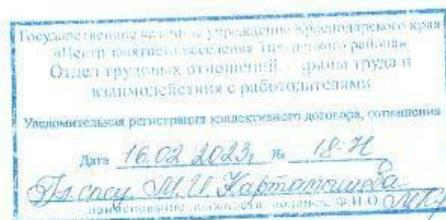 Государственное казенное учреждение Краснодарского края
«Центр занятости населения района»
Отдел трудовых отношений, охраны труда и
взаимодействия с работодателями
Уведомительная регистрация коллективного договора, соглашения
Дата 16.02.2023г. № 18-Н
Гл. спец. М.И
наименование должности подпись Ф.И.О